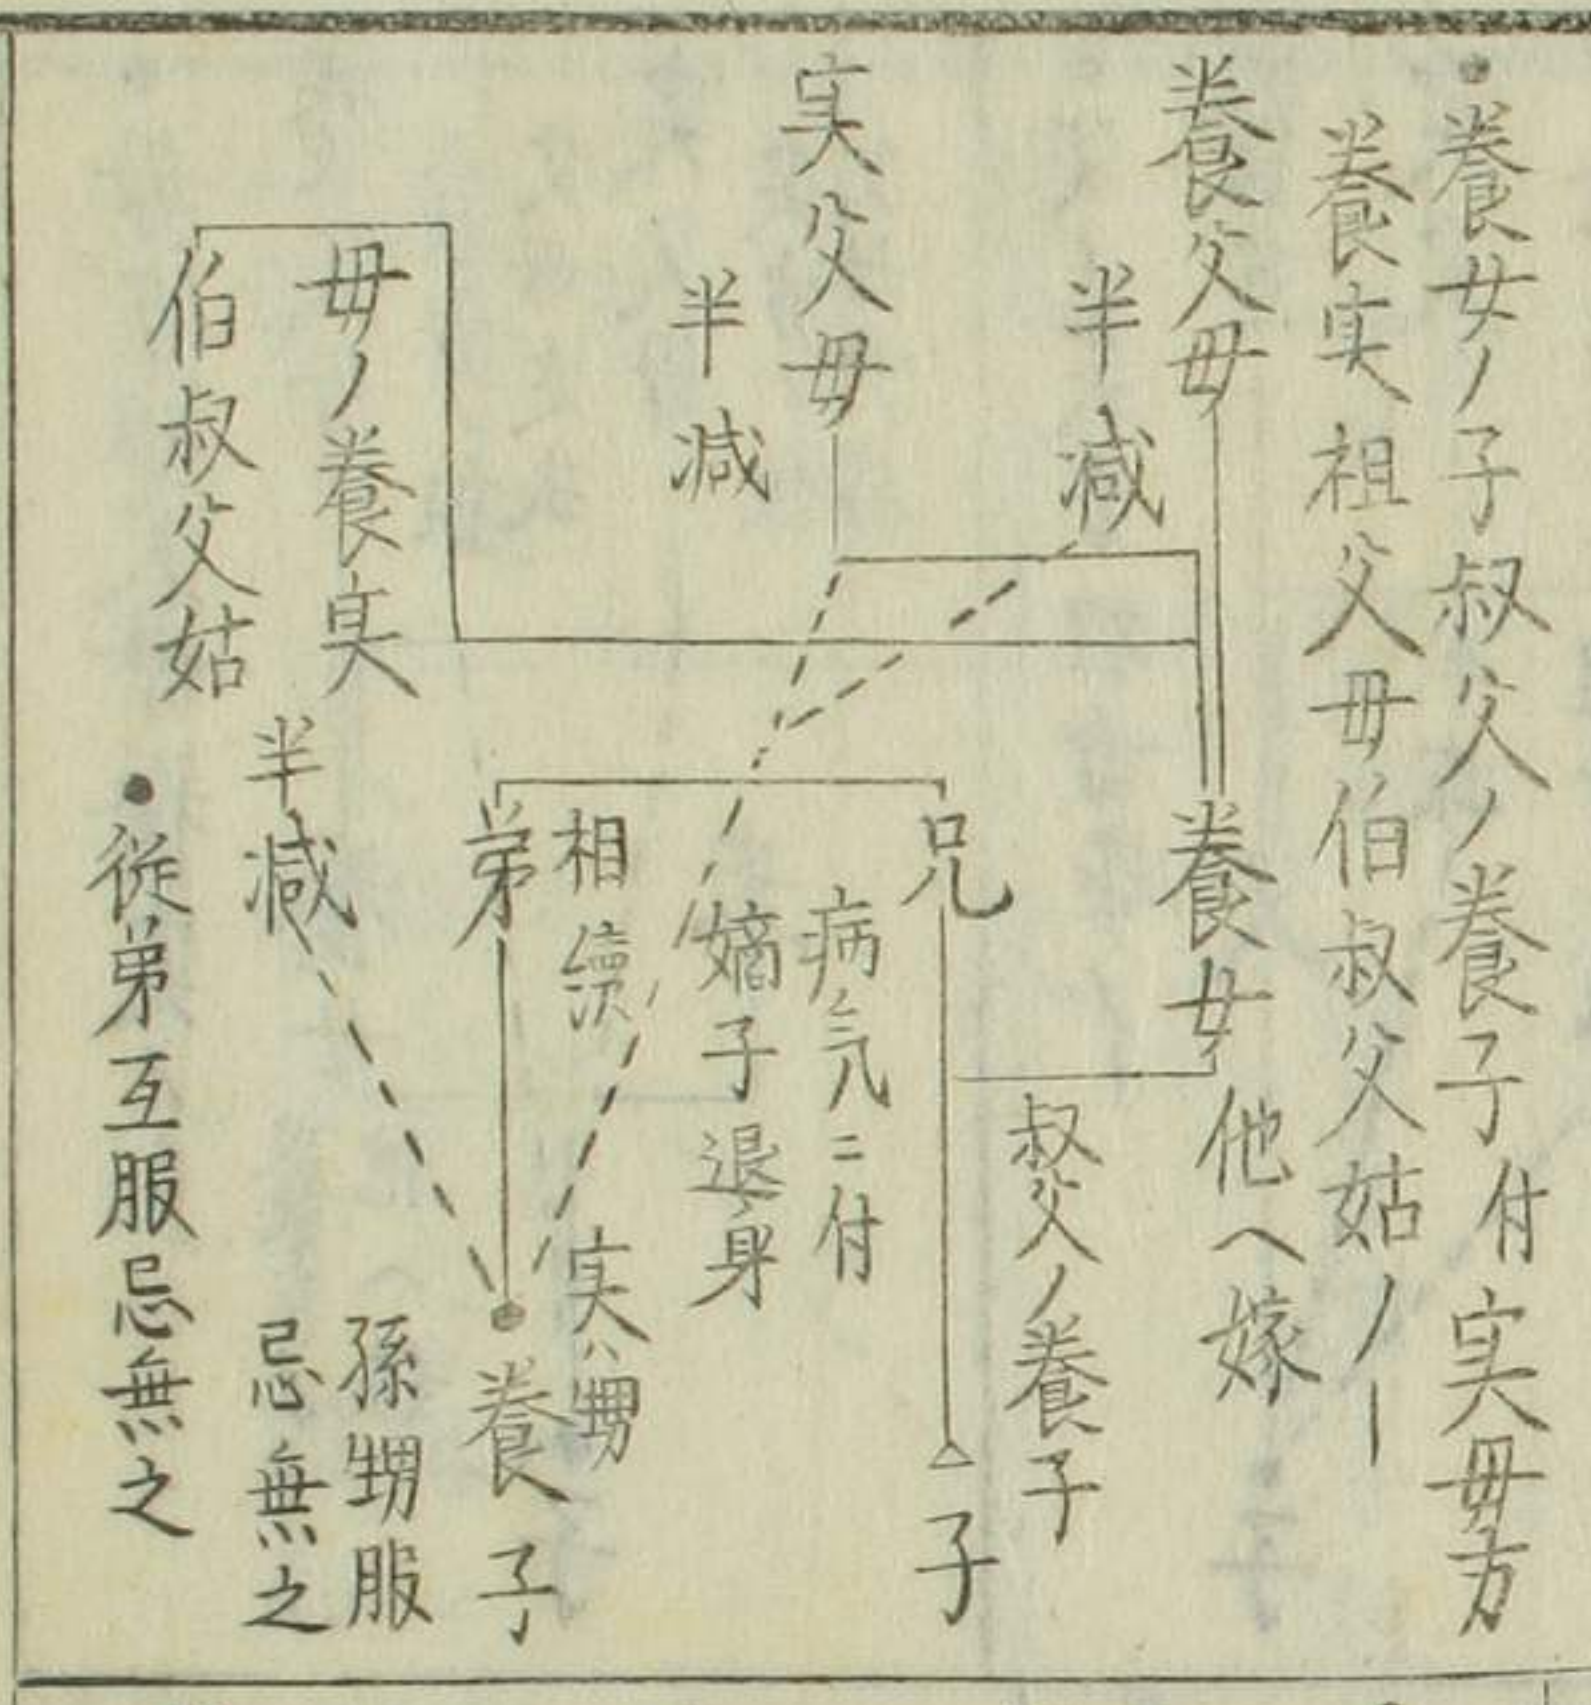 ・養女ノ子叔父ノ養子付実母方
養実祖父母伯叔父姑ノー
養父母
半減
実父母
半減
母ノ養実
伯叔父姑
半減
養女
他へ嫁
叔父ノ養子
兄
子
病気ニ付
嫡子退身
相続
弟
実ハ甥
養子
孫甥服
忌無之
・従弟互服忌無之